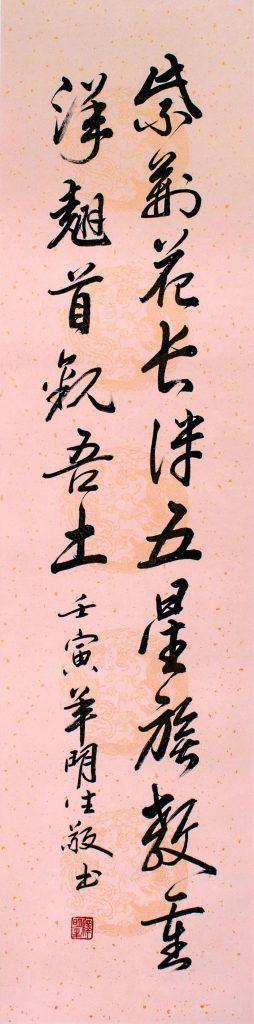 紫荆花长伴五星旗数重
洋翘首观吾土
壬寅 明生敬书